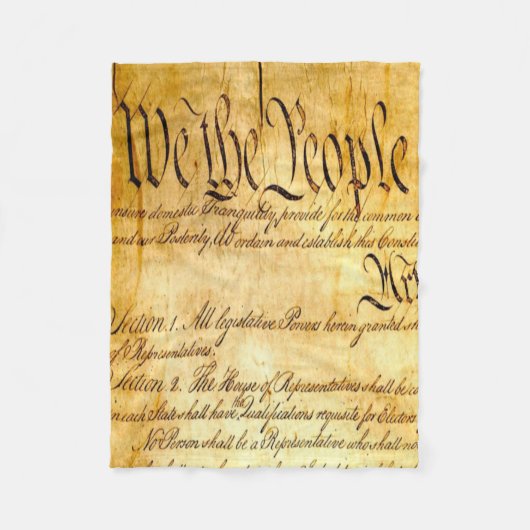 We the People
ensure domestic Tranquility, provide for the common
and our Posterity, do ordain and establish this Constit
Arti
Section 1. All legislative Powers herein granted sh
of Representatives.
Section 2. The House of Representatives shall be co
in each State shall have the Qualifications requisite for Electors
No Person shall be a Representative who shall no